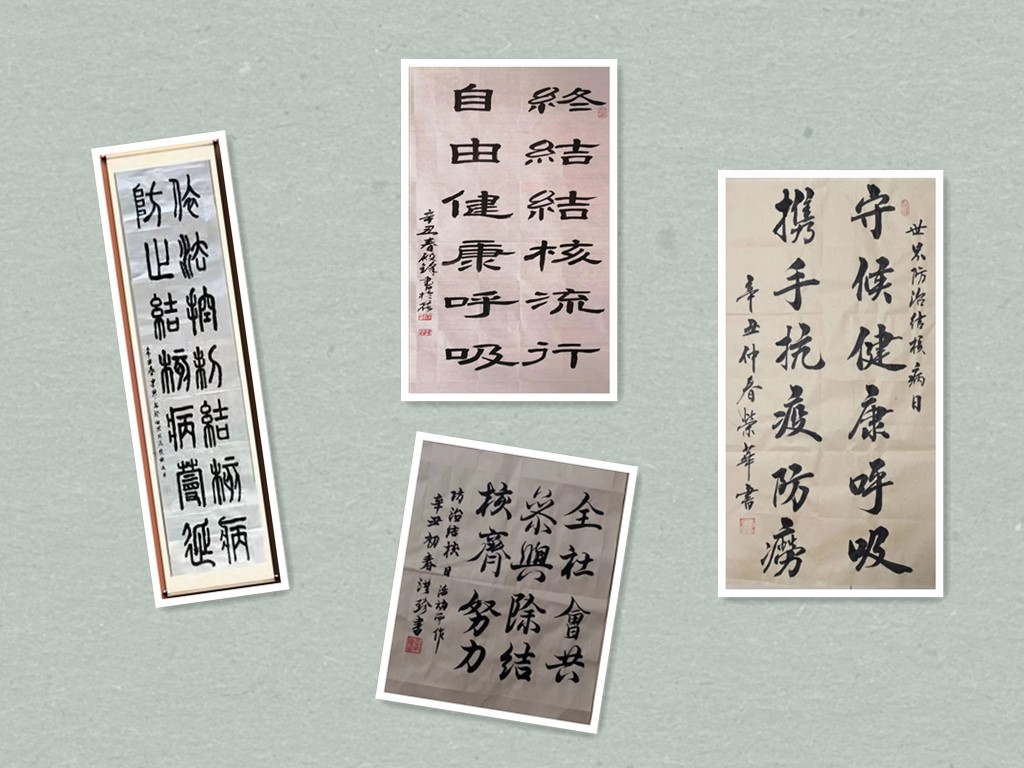 依法控制結核病
防止結核病蔓延
終結結核流行
自由健康呼吸
辛丑春
世界防治结核病日
守候健康呼吸
携手抗疫防癆
辛丑仲春榮華書
全社會共
叅與除结
核齊努力
防治结核日活动而作
辛丑初春
珍書